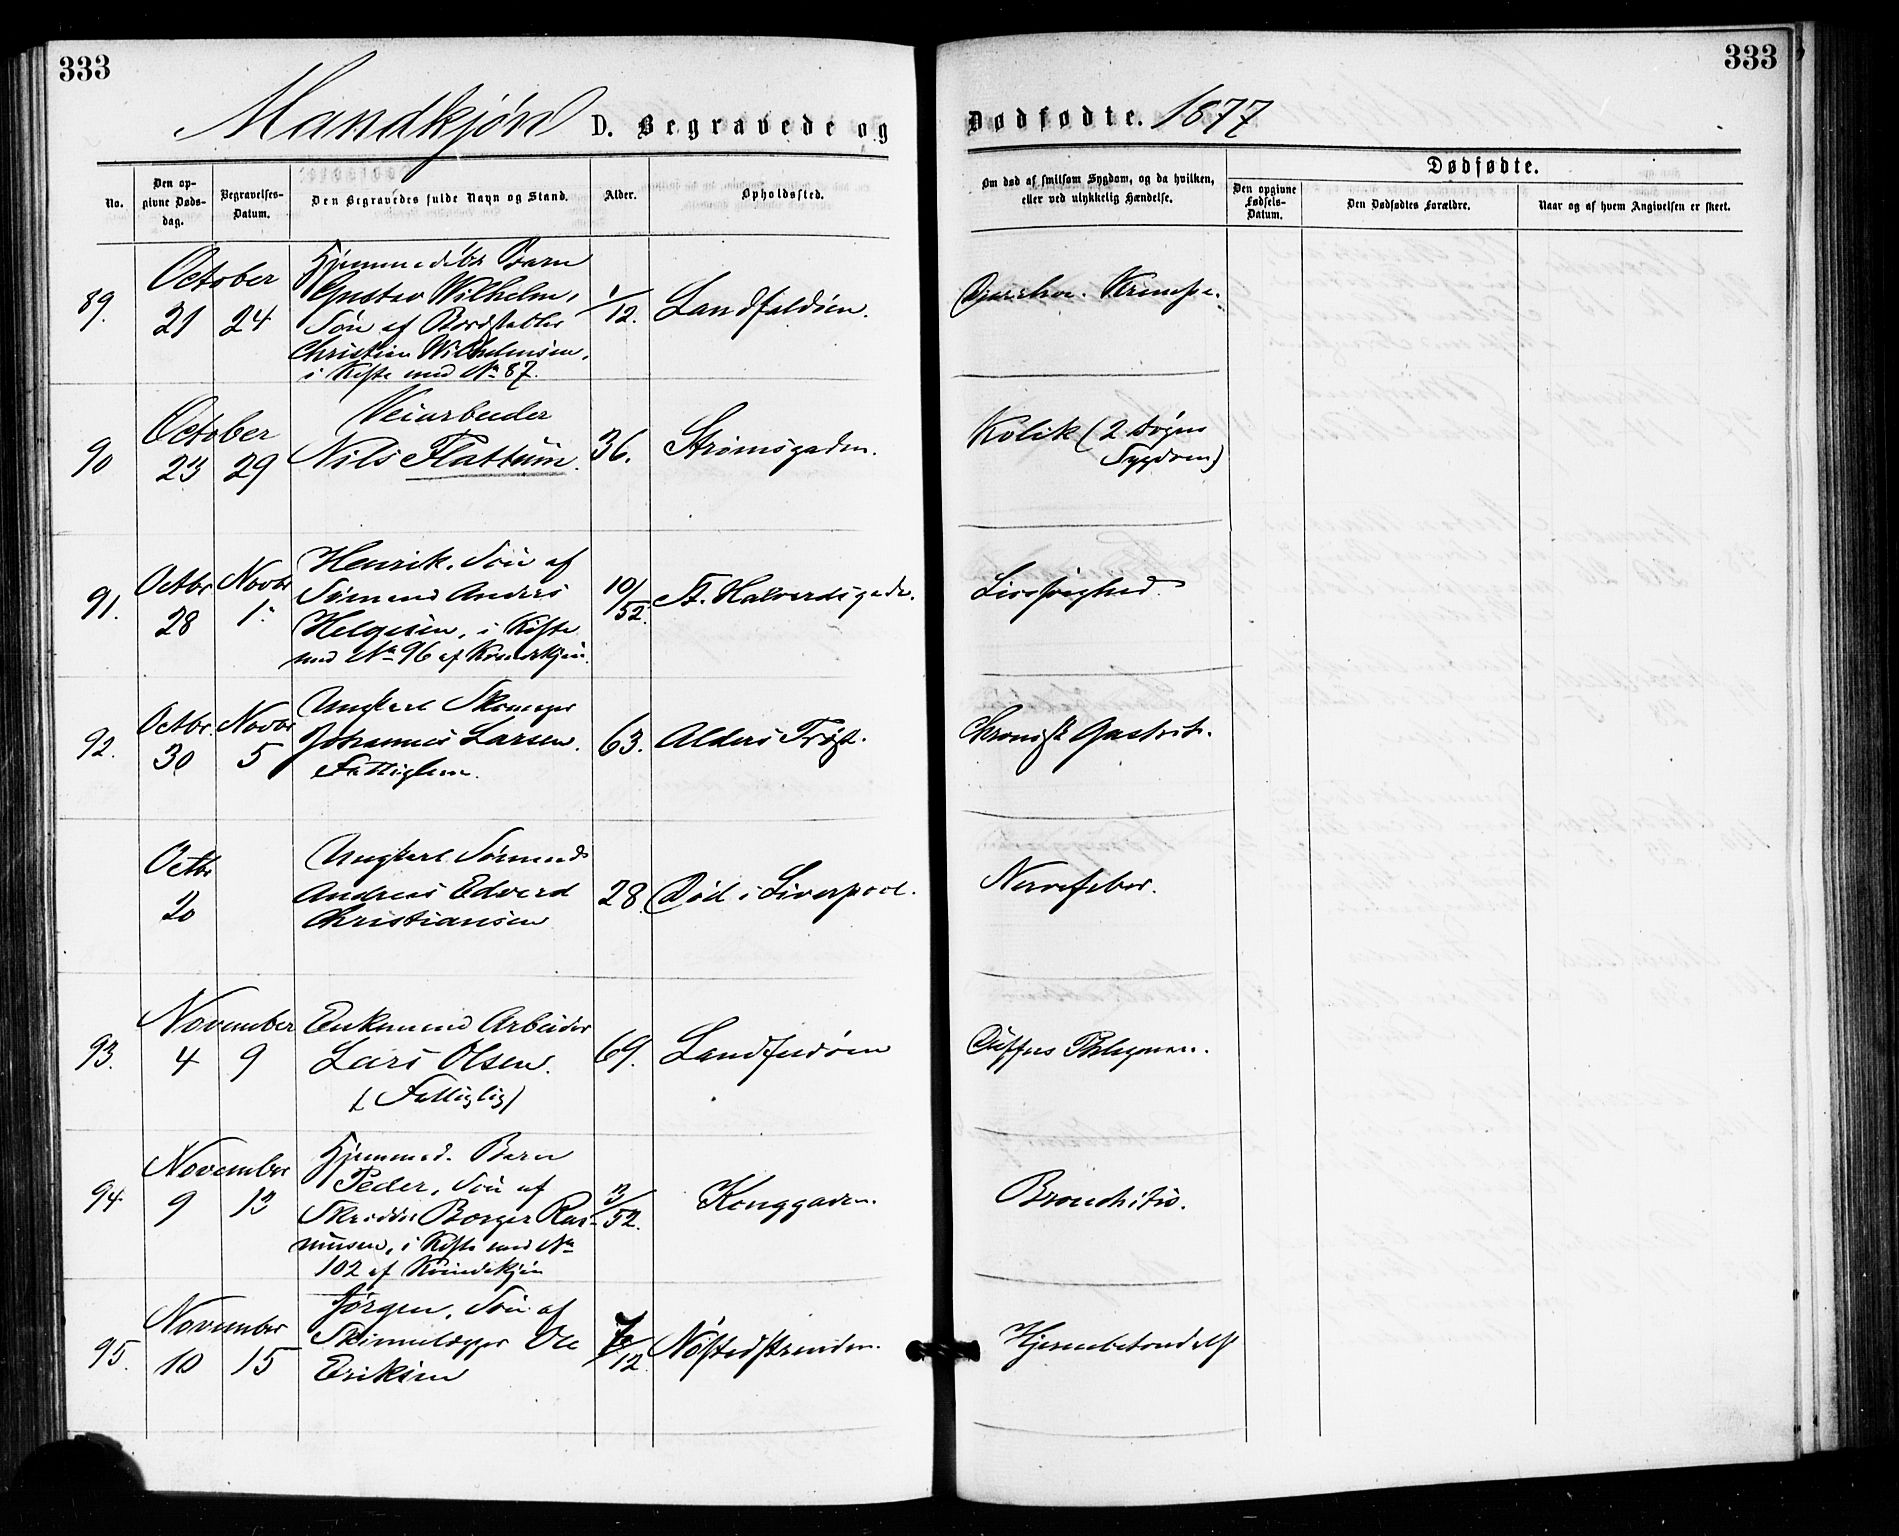 333
333
Mandkjøn D. Begravede og Dødfødte. 1877
No.
Den opgivne Dødsdag.
Begravelses-Datum.
Den Begravedes fulde Navn og Stand.
Alder.
Opholdssted.
Om død af smitsom Sygdom, og da hvilken,
eller ved ulykkelig Hændelse.
Dødfødte.
Den opgivne Fødsels-Datum.
Den Dødfødtes Forældre.
Naar og af hvem Angivelsen er skeet.
89.
October
21 24
Hjemmedøbt Barn
Gustav Wilhelm,
Søn af
Christian Wilhelmsen,
i Kiste med No 87.
1/12.
Landfaldøen.
Krampe.
90
October
23 29
Veiarbeider
Nils Flattum.
36.
Strømsgaden.
Kolik (2 Døgns
Sygdom)
91.
Octbr Novbr
28 1.
Henrik, Søn af
Sømand Anders
Helgesen, i Kiste
med No 96 af Kvindekjøn.
10/52.
St. Halvordsgade.
Livssvaghed.
92.
Octbr. Novbr
30 5
Ungkarl Skomager
Johannes Larsen.
Fattiglem.
63.
Alders Trøst.
Chronisk Gastrit.
Octbr
20
Ungkarl Sømand
Andreas Edvard
Christiansen
28.
Død i Liverpool.
Nervefeber.
93.
November
4 9
Enkemand Arbeider
Lars Olsen.
(Fattiglig)
69.
Landfaldøen
Diffus Phlegmone.
94.
November
9 13
Hjemmed. Barn
Peder, Søn af
Skrædder Borger Ras-
mussen, i Kiste med No
102 af Kvindekjøn
3/52.
Konggaden.
Bronchitis.
95.
November
10 15
Jørgen, Søn af
Ole
Eriksen
7/12.
Nøstedstranden.
Hjernebetændelse